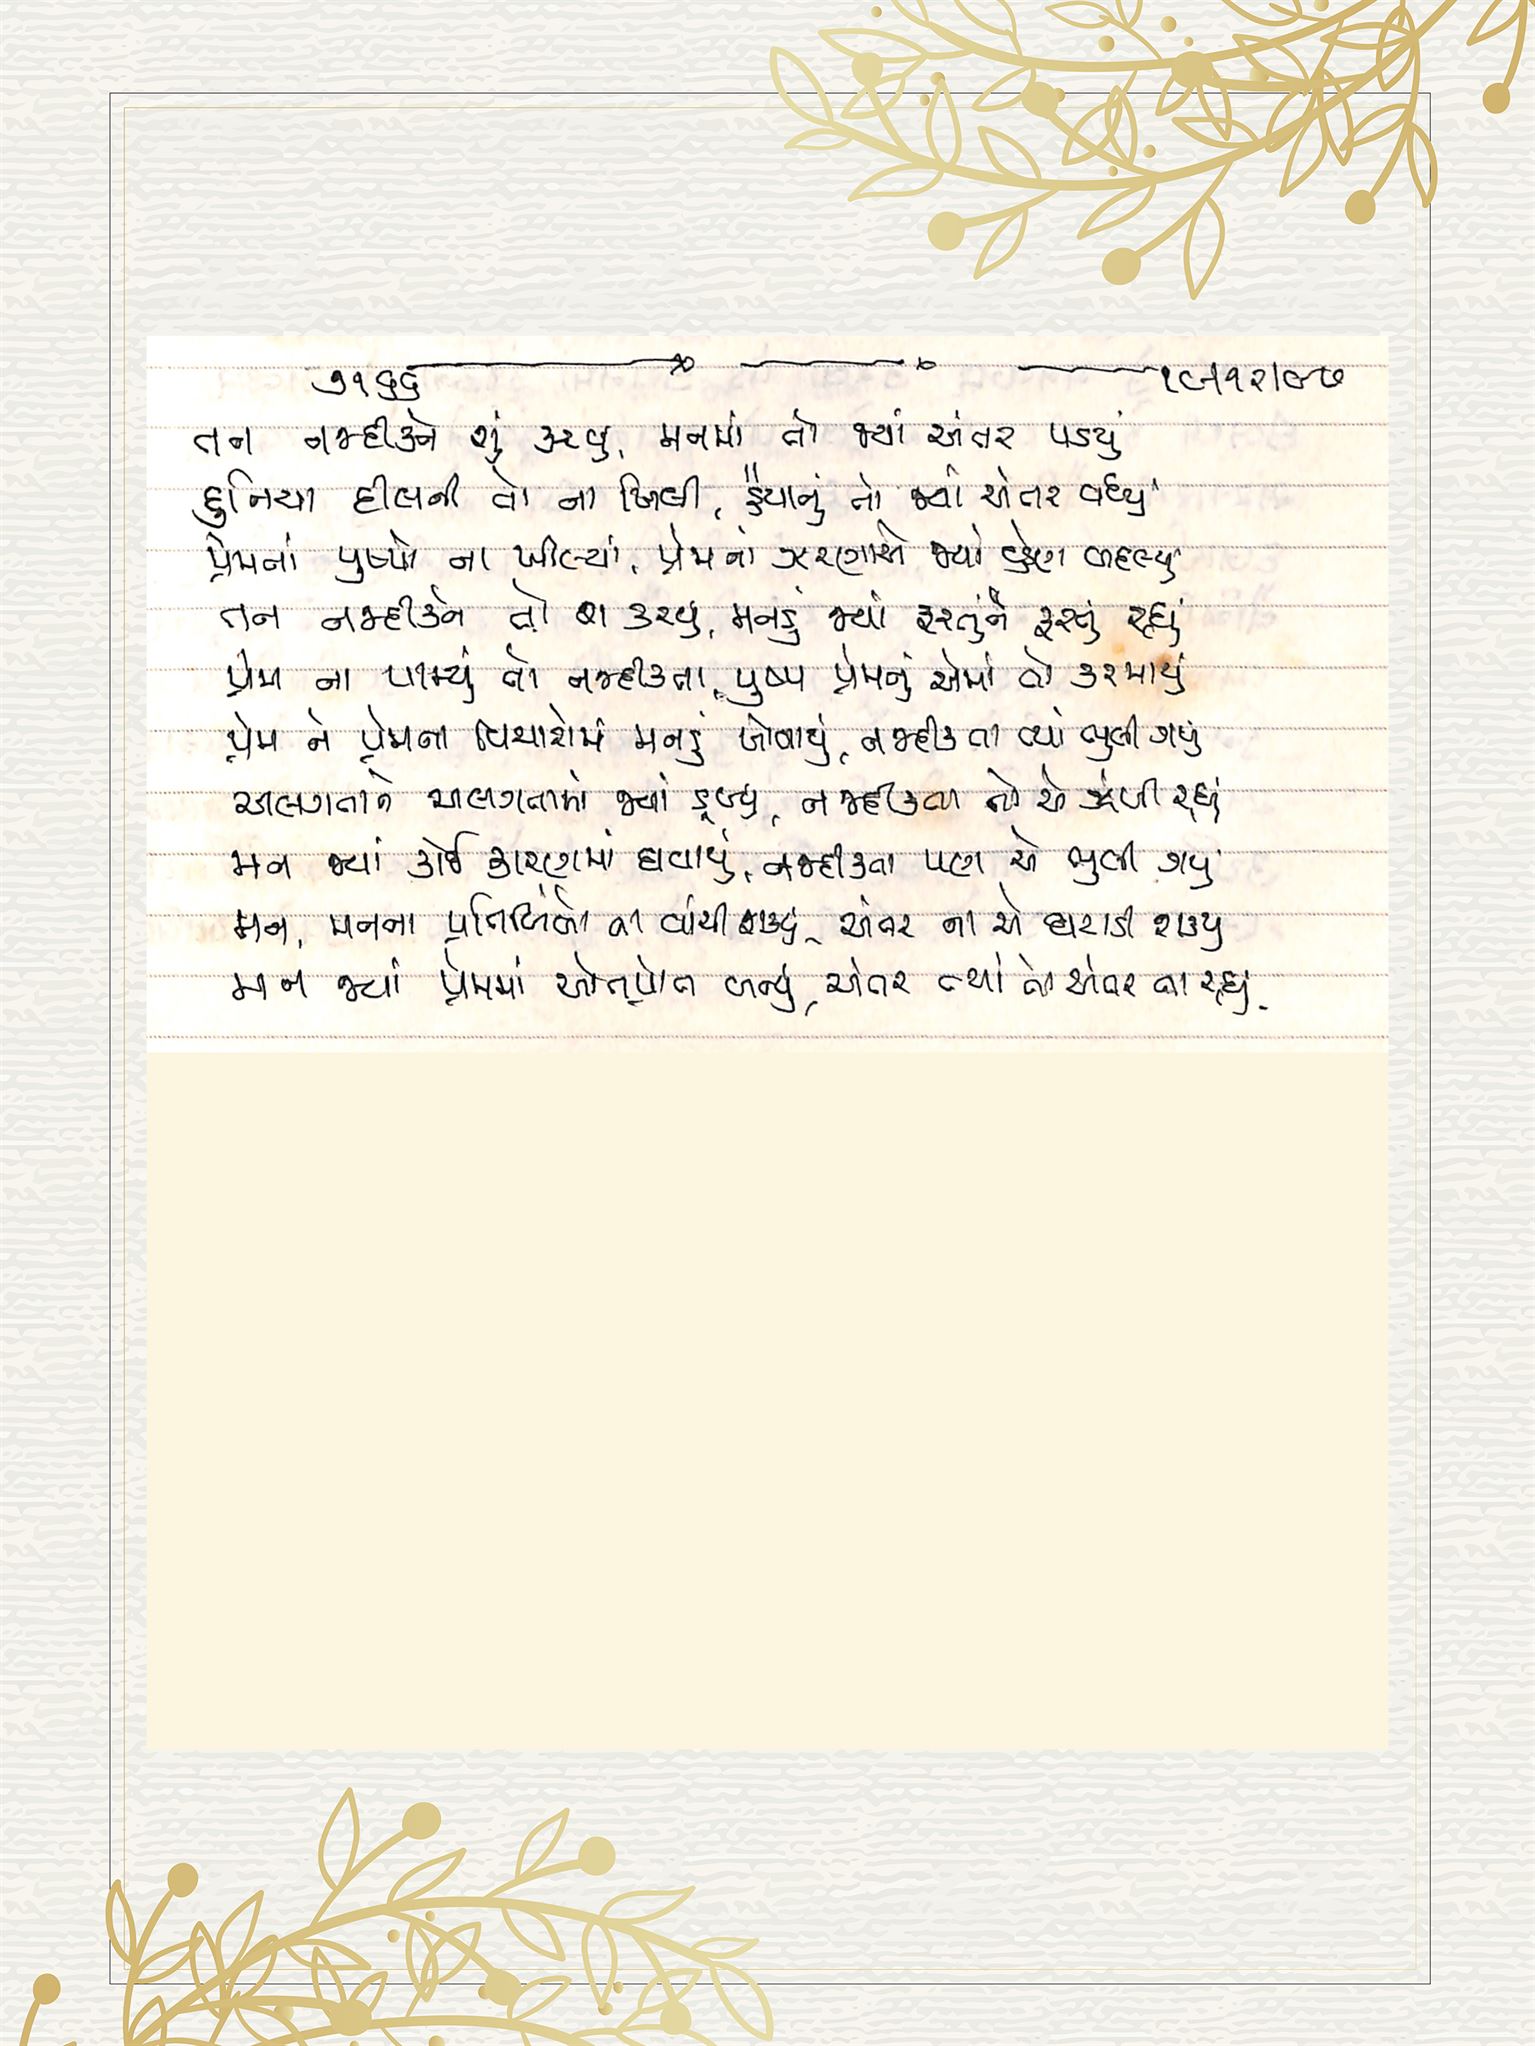 ૭૧૬૬ ૧૯/૧૨/૯૭
તન નજદીકને શું કરવુ, મનમાં તો જ્યાં અંતર પડયું
દુનિયા દીલની તો ના ખિલી, હૈયાનું તો જ્યાં અંતર વધ્યું
પ્રેમનાં પુષ્પો ના ખીલ્યાં, પ્રેમનાં ઝરણાએ જ્યાં વ્હેણ બદલ્યુ
તન નજદીકને તો શું કરવુ, મનડું જ્યાં ફરતુંને ફરતું રહ્યું
પ્રેમ ના પામ્યું તો નજદીકતા, પુષ્પ પ્રેમનું એમાં તો કરમાયું
પ્રેમ ને પ્રેમના વિચારોમાં મનડું ખોવાયું, નજદીકતા ત્યાં ભુલી ગયું
અલગતાને અલગતામાં જ્યાં ડૂબ્યુ, નજદીકતા તો એ ઝંખી રહ્યું
મન જ્યાં કોઈ કારણમાં ઘવાયું, નજદીકતા પણ એ ભુલી ગયુ
મન, મનના પ્રતિબિંબો ના વાંચી શક્યું, અંતર ના એ હટાડી શક્યુ
મન જ્યાં પ્રેમમાં ઓતપ્રોત બન્યું, અંતર ત્યાં તો અંતર ના રહ્યું.